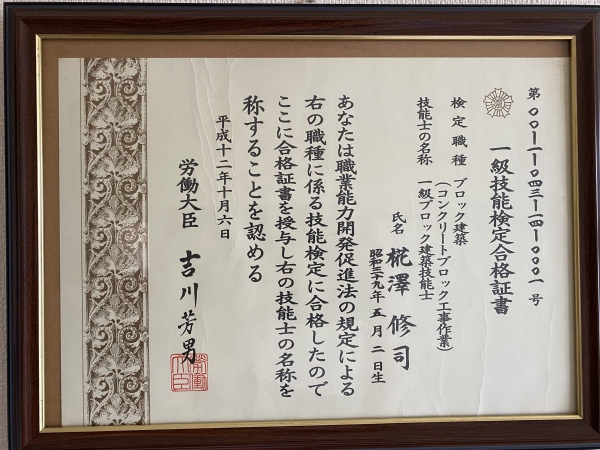 第〇〇一一一〇四三一一四一〇〇〇一号
一級技能検定合格証書
検定職種 ブロック建築
(コンクリートブロック工事作業)
技能士の名称 一級ブロック建築技能士
氏名 椛澤修司
昭和三九年五月二日生
あなたは職業能力開発促進法の規定による
右の職種に係る技能検定に合格したので
ここに合格証書を授与し右の技能士の名称を
称することを認める
平成十二年十月六日
労働大臣 吉川芳男
労働大臣